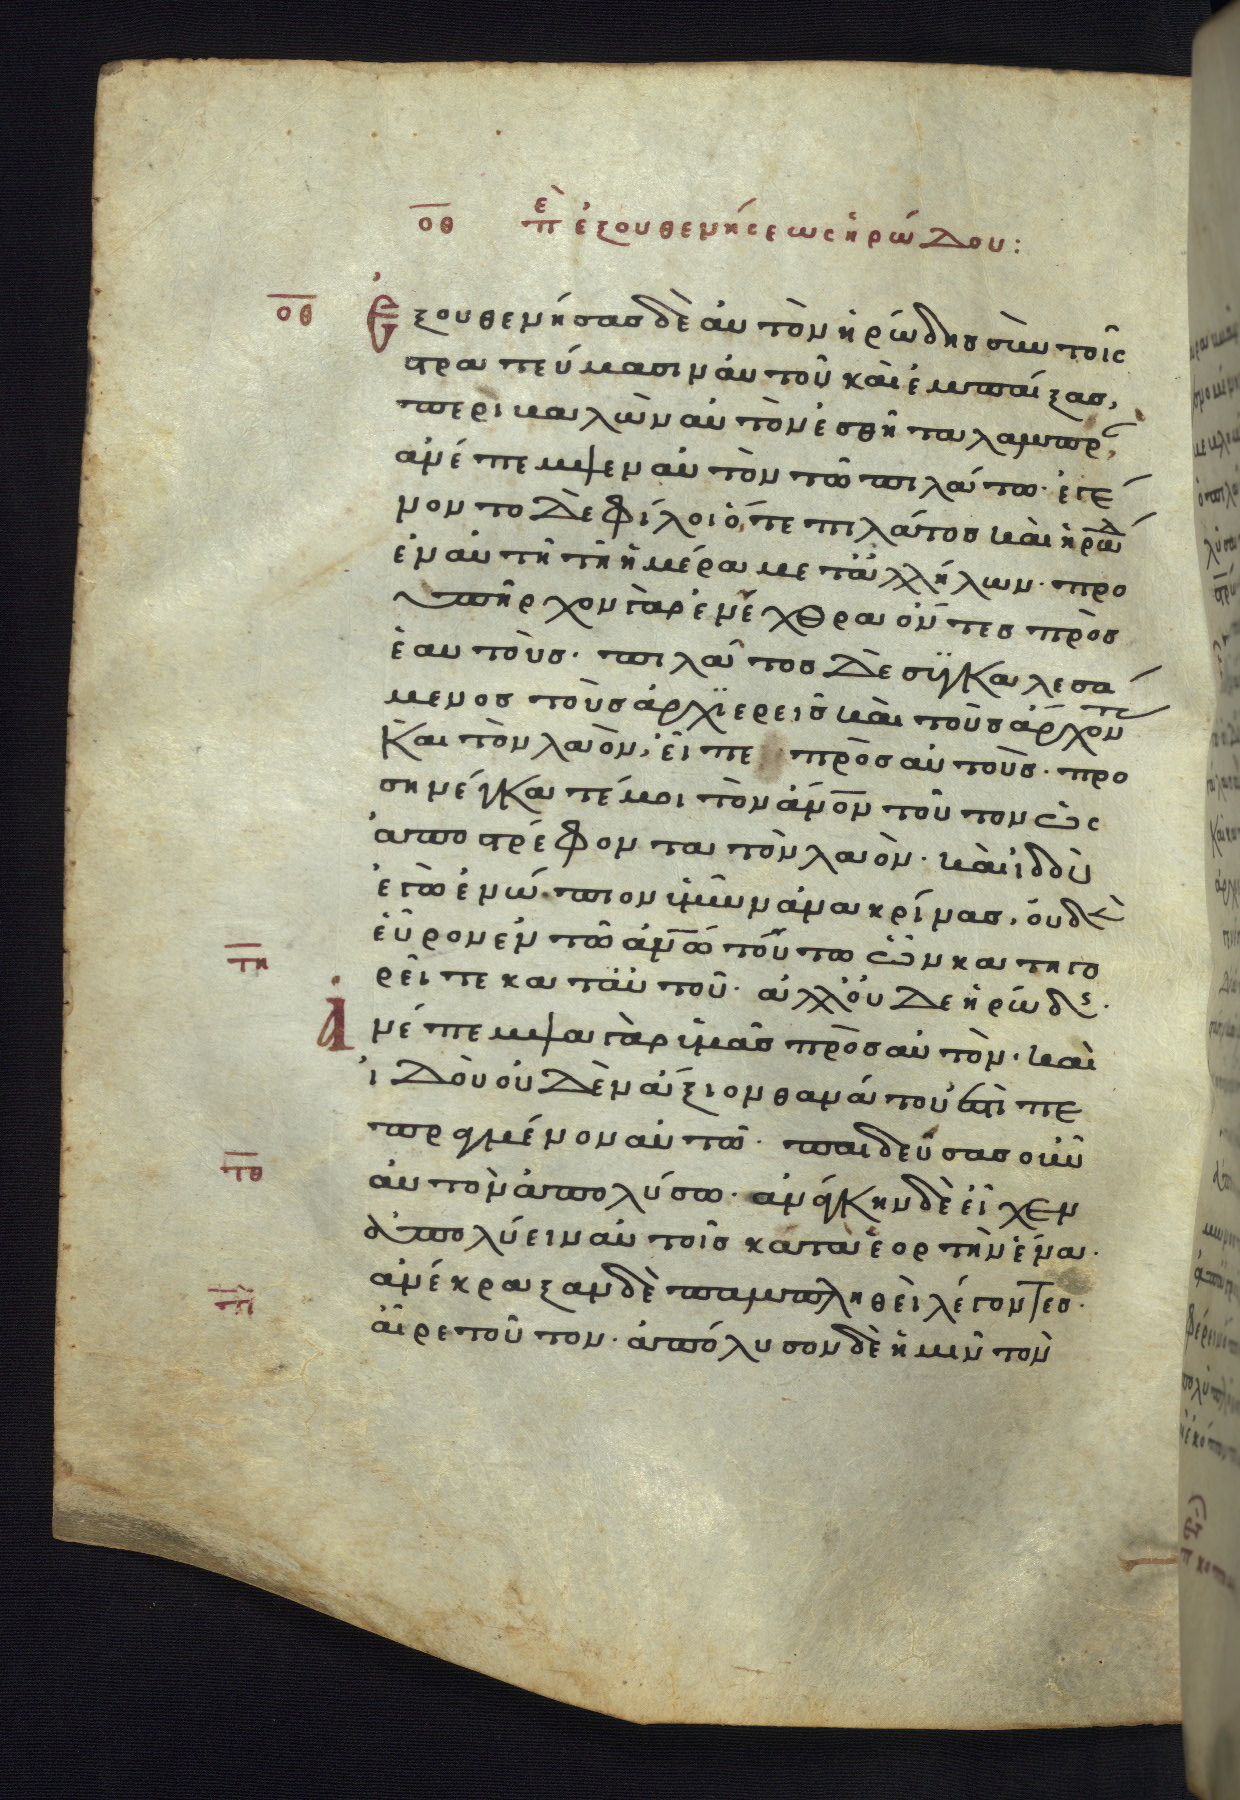 οθ περὶ ἐξουθενήσεως ἡρώδου:
οθ Ἐξουθενήσας δὲ αὐτὸν ἡρώδης σὺν τοῖς
στρατεύμασιν αὐτοῦ καὶ ἐμπαίξας,
περιβαλὼν αὐτὸν ἐσθῆτα λαμπρ
ἀνέπεμψεν αὐτὸν τῶ πιλάτω· ἐγέ
νοντο δὲ φίλοι ὅ,τε πιλάτος καὶ ἡρώδ
ἐν αὐτῆ τῆ ἡμέρα μετἀλλήλων· προ
ϋπῆρχον γὰρ ἐν ἔχθρα ὄντες πρὸς
ἑαυτούς· πιλᾶτος δὲ συγκαλεσά
μενος τοὺς ἀρχϊερεῖς καὶ τοὺς ἄρχοντ
καὶ τὸν λαὸν, εἶπε πρὸς αὐτούς· προ
σηνέγκατέ μοι τὸν ἄνον τοῦτον ὡς
ἀποστρέφοντα τὸν λαόν· καὶ ἰδοὺ
ἐγὼ ἐνώπιον ὑμῶν ἀνακρίνας, οὐδὲ
εὗρον ἐν τῶ ἀνω τούτω ὧν κατηγο
τη ρεῖτε κατ αὐτοῦ· ἀλλ οὐδε ἡρώδς·
ἀνέπεμψα γὰρ ὑμᾶς πρὸς αὐτόν· καὶ
ἰδοὺ οὐδὲν ἄξιον θανάτου ἐστὶ πε
πραγμένον αὐτῶ· παιδεύσας οὖν
τθ αὐτὸν ἀπολύσω· ἀνάγκην δὲ εἶχεν
ἀπολύειν αὐτοῖς κατα ἑορτὴν ἕνα·
τι ἀνέκραξαν δὲ παμπληθεὶ λέγοντες·
αἶρε τοῦτον· ἀπόλυσον δὲ ἡμῖν τὸν